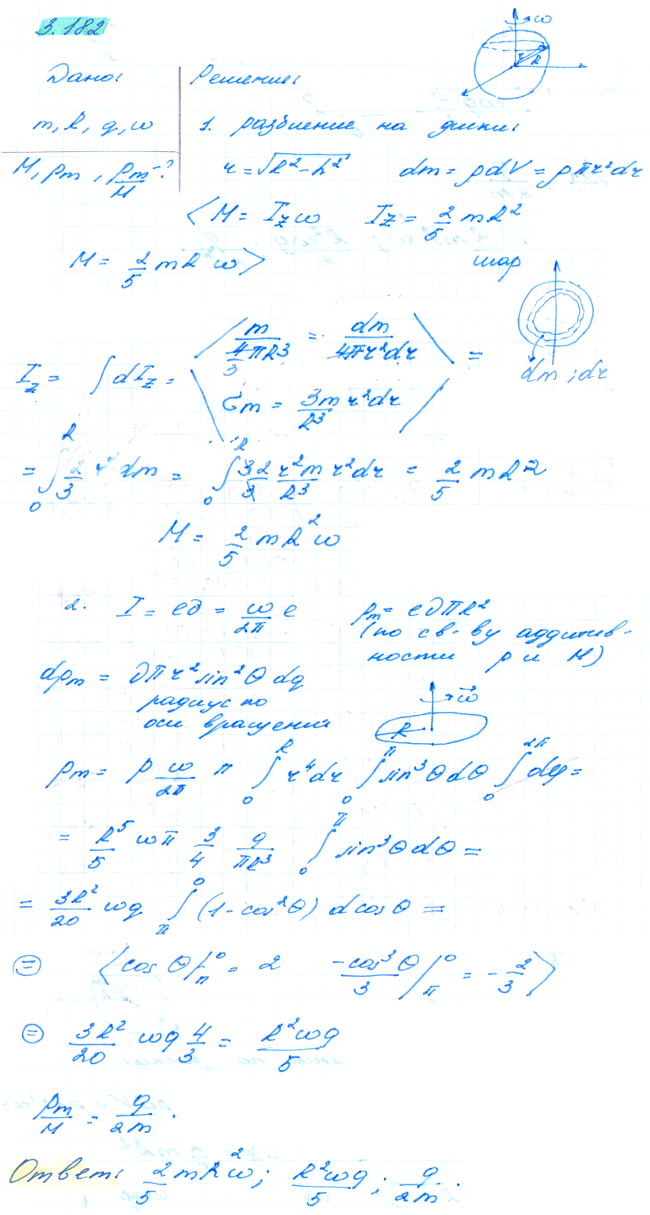 3.182
ω
R
Дано: Решение:
m, R, q, ω 1. разбиение на диски:
M, pₘ, pₘ/M - ? r = √(R² - h²) dm = ρdV = ρπr²dr
⟨M = I_z ω I_z = 2/5 mR²
M = 2/5 mR ω⟩ шар
I_z = ∫dI_z = ⟨ m/(4/3 πR³) = dm/(4πr²dr)
σm = 3m/R³ r²dr ⟩ =
dm; dr
= ∫₀ᴿ 2/3 r² dm = ∫₀ᴿ 3·2/3 r²m/R³ r²dr = 2/5 mR²
M = 2/5 mR²ω
2. I = e∂ = ω/2π e pₘ = e∂πR²
(по св-ву аддитив-
ности p и M)
dpₘ = ∂πr²sin²θ dq
радиус по
оси вращения
ω⃗
R
pₘ = ρ ω/2π π ∫₀ᴿ r⁴dr ∫₀^π sin³θdθ ∫₀^2π dφ =
= R⁵/5 ωπ 3/4 q/πR³ ∫₀^π sin³θdθ =
= 3R²/20 ωq ∫_π^0 (1-cos²θ) dcosθ =
= ⟨cosθ|_π^0 = 2 -cos³θ/3 |_π^0 = -2/3⟩
= 3R²/20 ωq 4/3 = R²ωq/5
pₘ/M = q/2m.
Ответ: 2/5 mR²ω; R²ωq/5; q/2m.